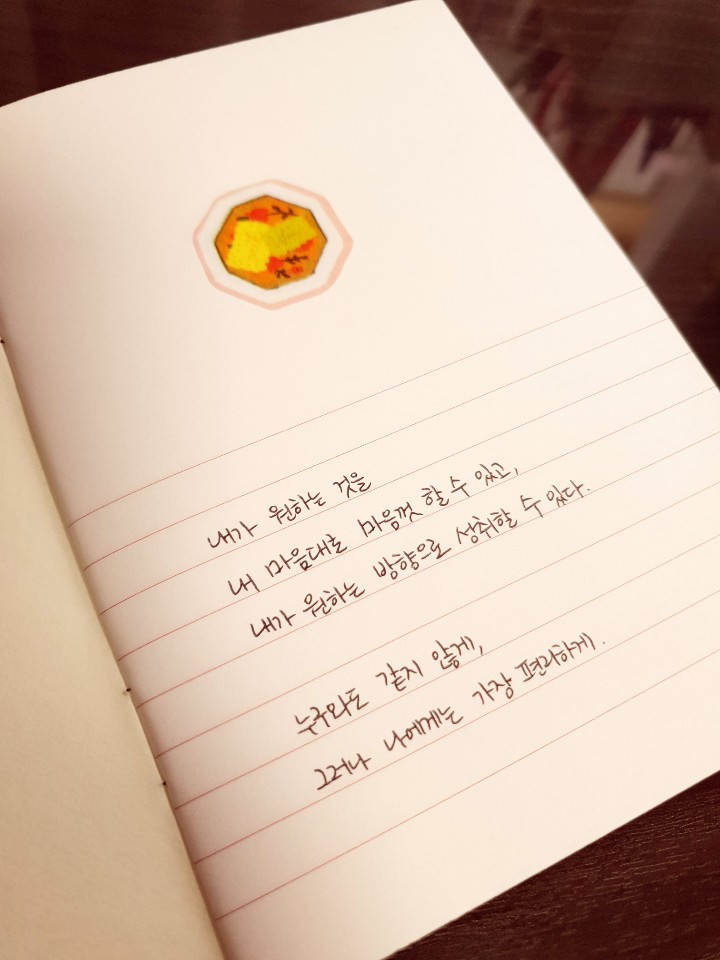 내가 원하는 것을
내 마음대로 마음껏 할 수 있고,
내가 원하는 방향으로 성취할 수 있다.
누구와도 같지 않게,
그러나 나에게는 가장 편라하게.